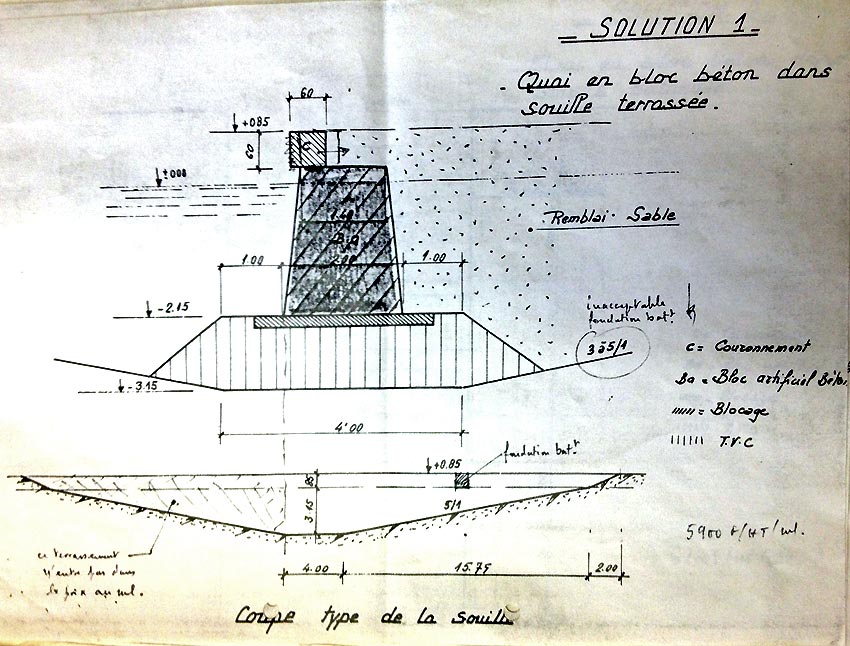 SOLUTION 1
- Quai en bloc béton dans
souille terrassée.
60
+085
60
C
±0.00
Remblai Sable
1.00
2.00
1.00
inacceptable
fondation batt
-2.15
3 à 5/1
C = Couronnement
Ba = Bloc artificiel Béton
-3.15
= Blocage
T.V.C
4.00
fondation batt
+0.85
85
3.15
5/1
5900 F/HT/ml.
ce terrassement
n'entre pas dans
le prix au ml.
4.00
15.75
2.00
Coupe type de la souille